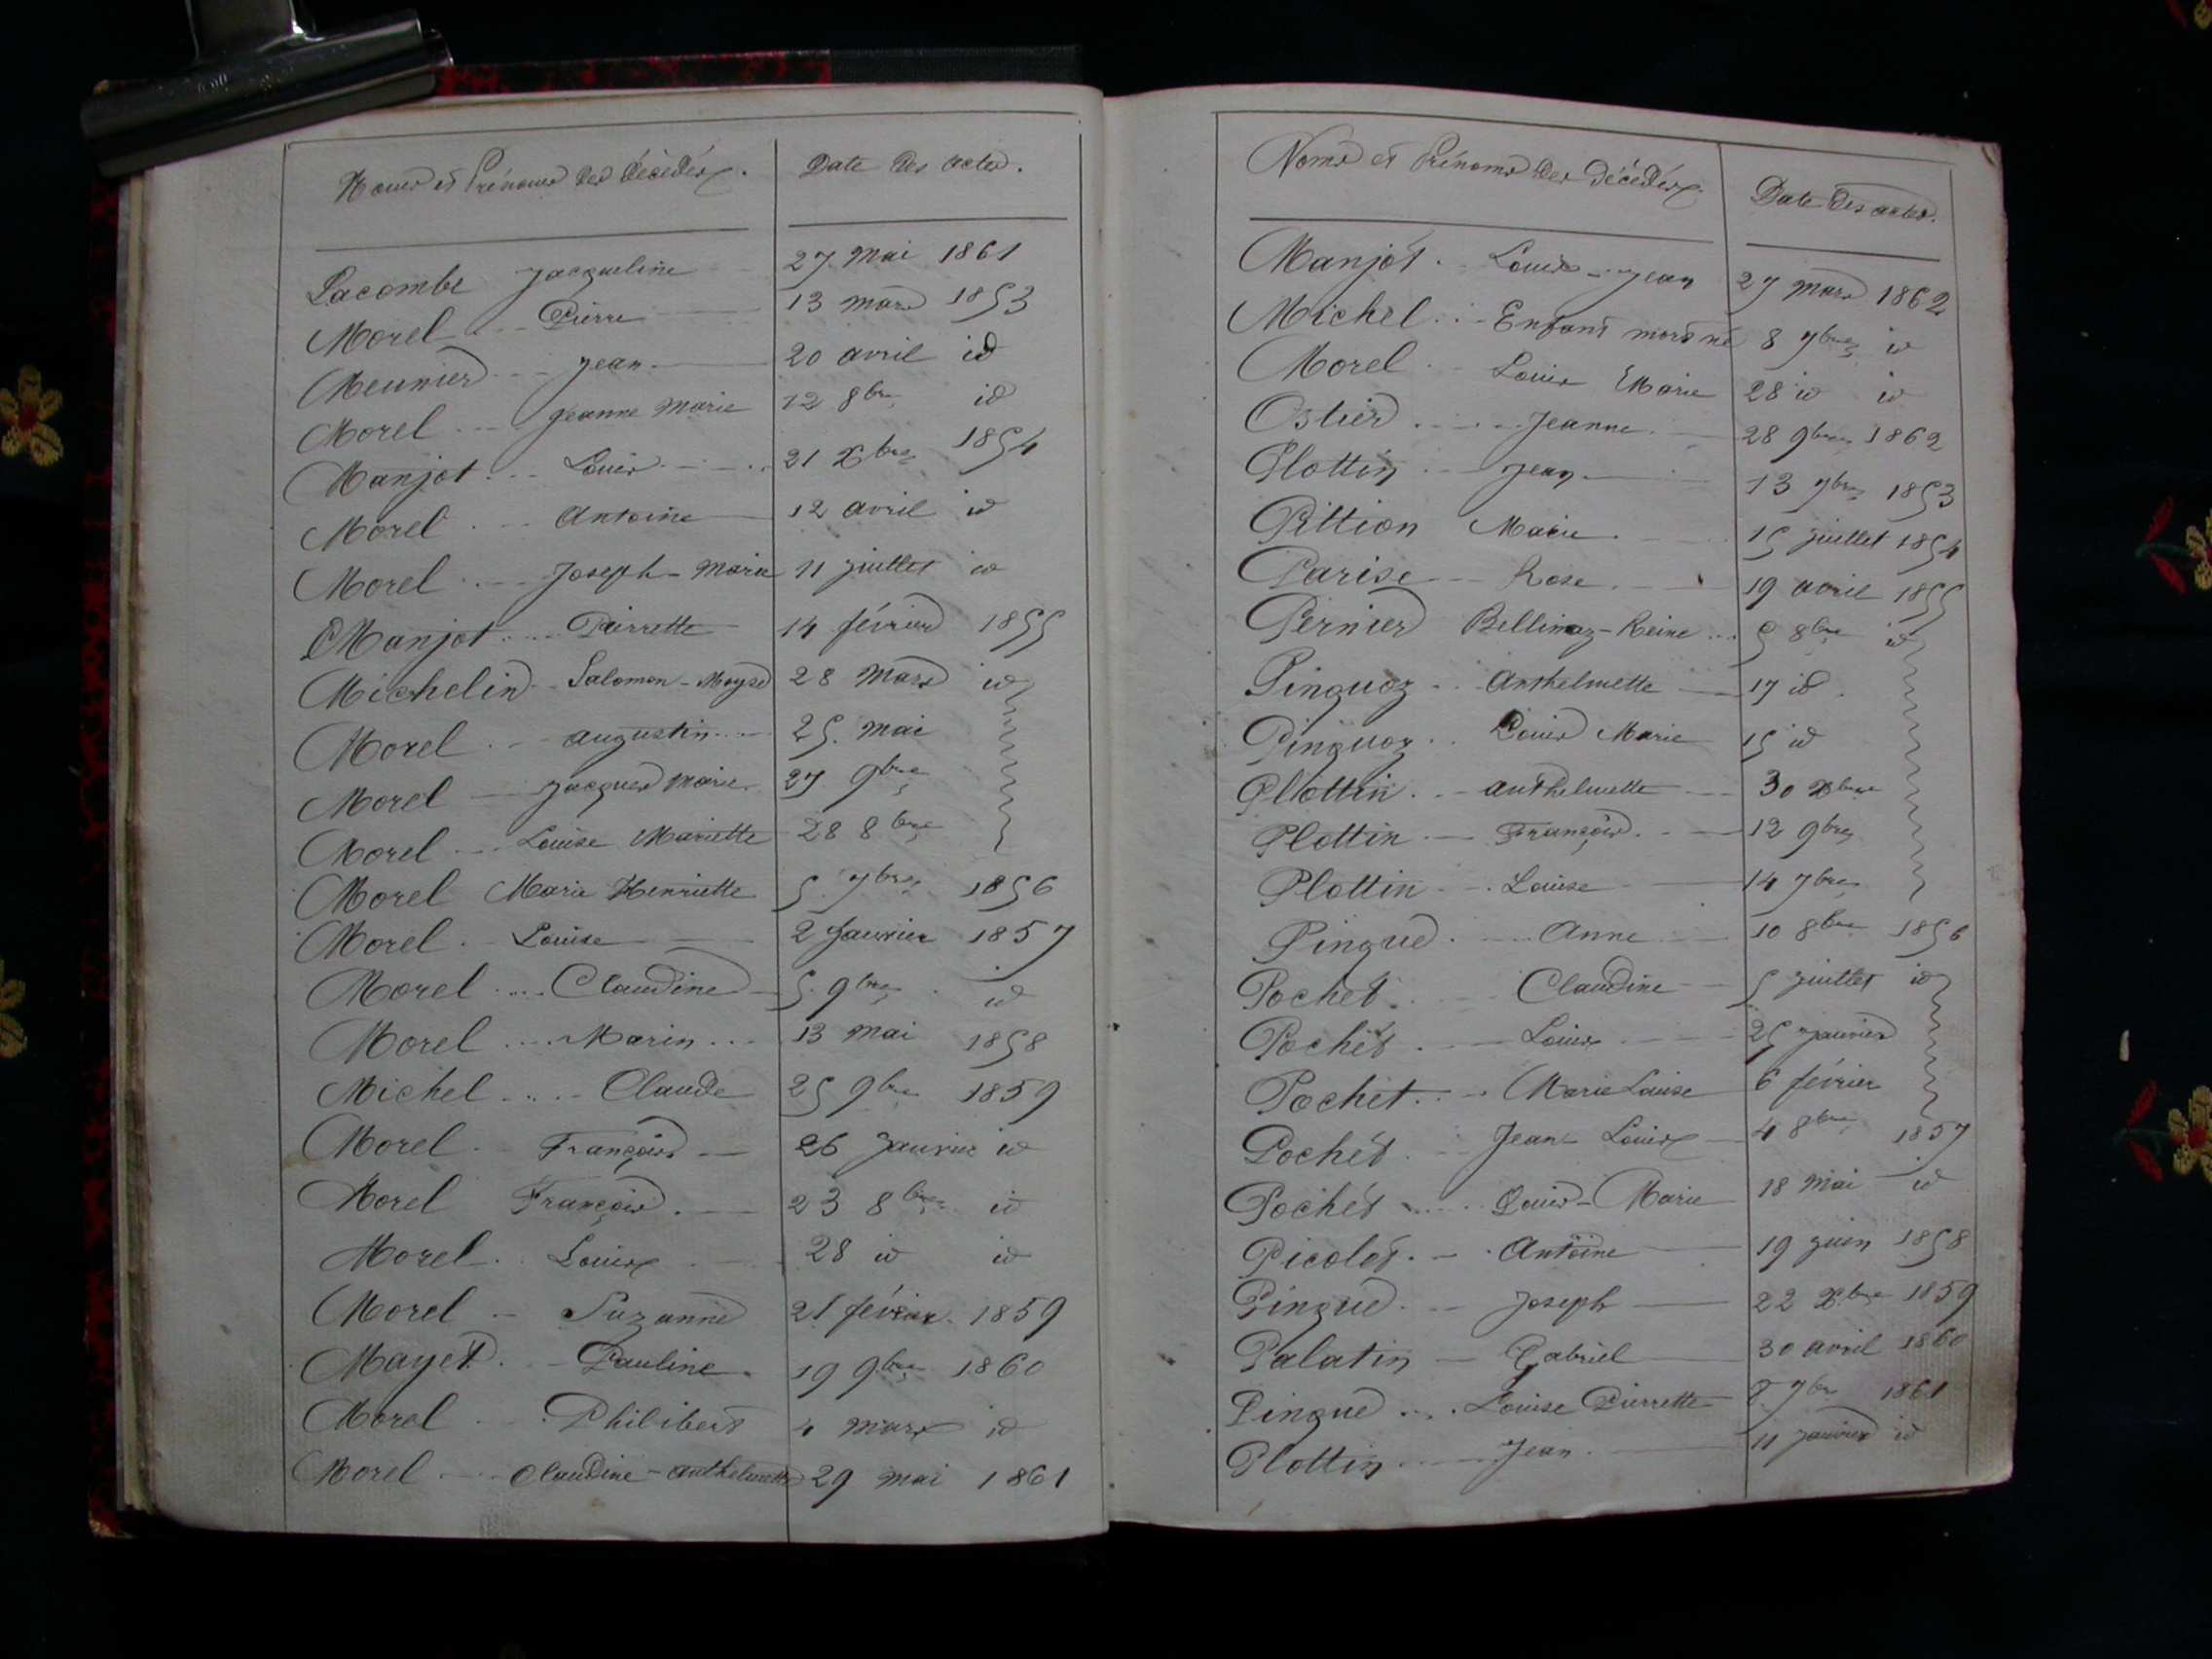 Noms et Prénoms des décédés. Date des actes.
Lacombe Jacqueline 27 Mai 1861
Morel Pierre 13 mars 1853
Meunier Jean 20 avril id
Morel Jeanne Marie 12 8bre id
Manjot Louis 21 Xbre 1854
Morel Antoine 12 avril id
Morel Joseph-Marie 11 juillet id
Manjot Pierrette 14 février 1855
Michelin Salomon-Moyse 28 Mars id
Morel Augustin 25 Mai
Morel Jacques Marie 27 9bre
Morel Louise Mariette 28 8bre
Morel Marie Henriette 5 7bre 1856
Morel Louise 2 Janvier 1857
Morel Claudine 5 9bre id
Morel Marin 13 Mai 1858
Michel Claude 25 9bre 1859
Morel François 26 Janvier id
Morel François 23 8bre id
Morel Louis 28 id id
Morel Suzanne 21 février 1859
Mayet Pauline 19 9bre 1860
Morel Philibert 4 mars id
Morel Claudine-Anthelmette 29 mai 1861
Noms et Prénoms des décédés. Date des actes.
Manjot Louis-Jean 27 mars 1862
Michel Enfant mort né 8 7bre id
Morel Louis Marie 28 id id
Ostier Jeanne 28 9bre 1862
Plottin Jean 13 7bre 1853
Pittion Marie 15 juillet 1854
Parise Rose 19 avril 1855
Pernier Bellimaz-Reine 5 8bre id
Pinguoz Anthelmette 17 id
Pinguoz Louis Marie 15 id
Plottin Anthelmette 30 Xbre
Plottin François 12 9bre
Plottin Louise 14 7bre
Pingue Anne 10 8bre 1856
Pochet Claudine 5 juillet id
Pochet Louis 25 Janvier
Pochet Marie Louise 6 février
Pochet Jean Louis 4 8bre 1857
Pochet Louis-Marie 18 Mai id
Picolet Antoine 19 juin 1858
Pingue Joseph 22 Xbre 1859
Palatin Gabriel 30 avril 1860
Pingue Louise Pierrette 8 7bre 1861
Plottin Jean 11 Janvier id